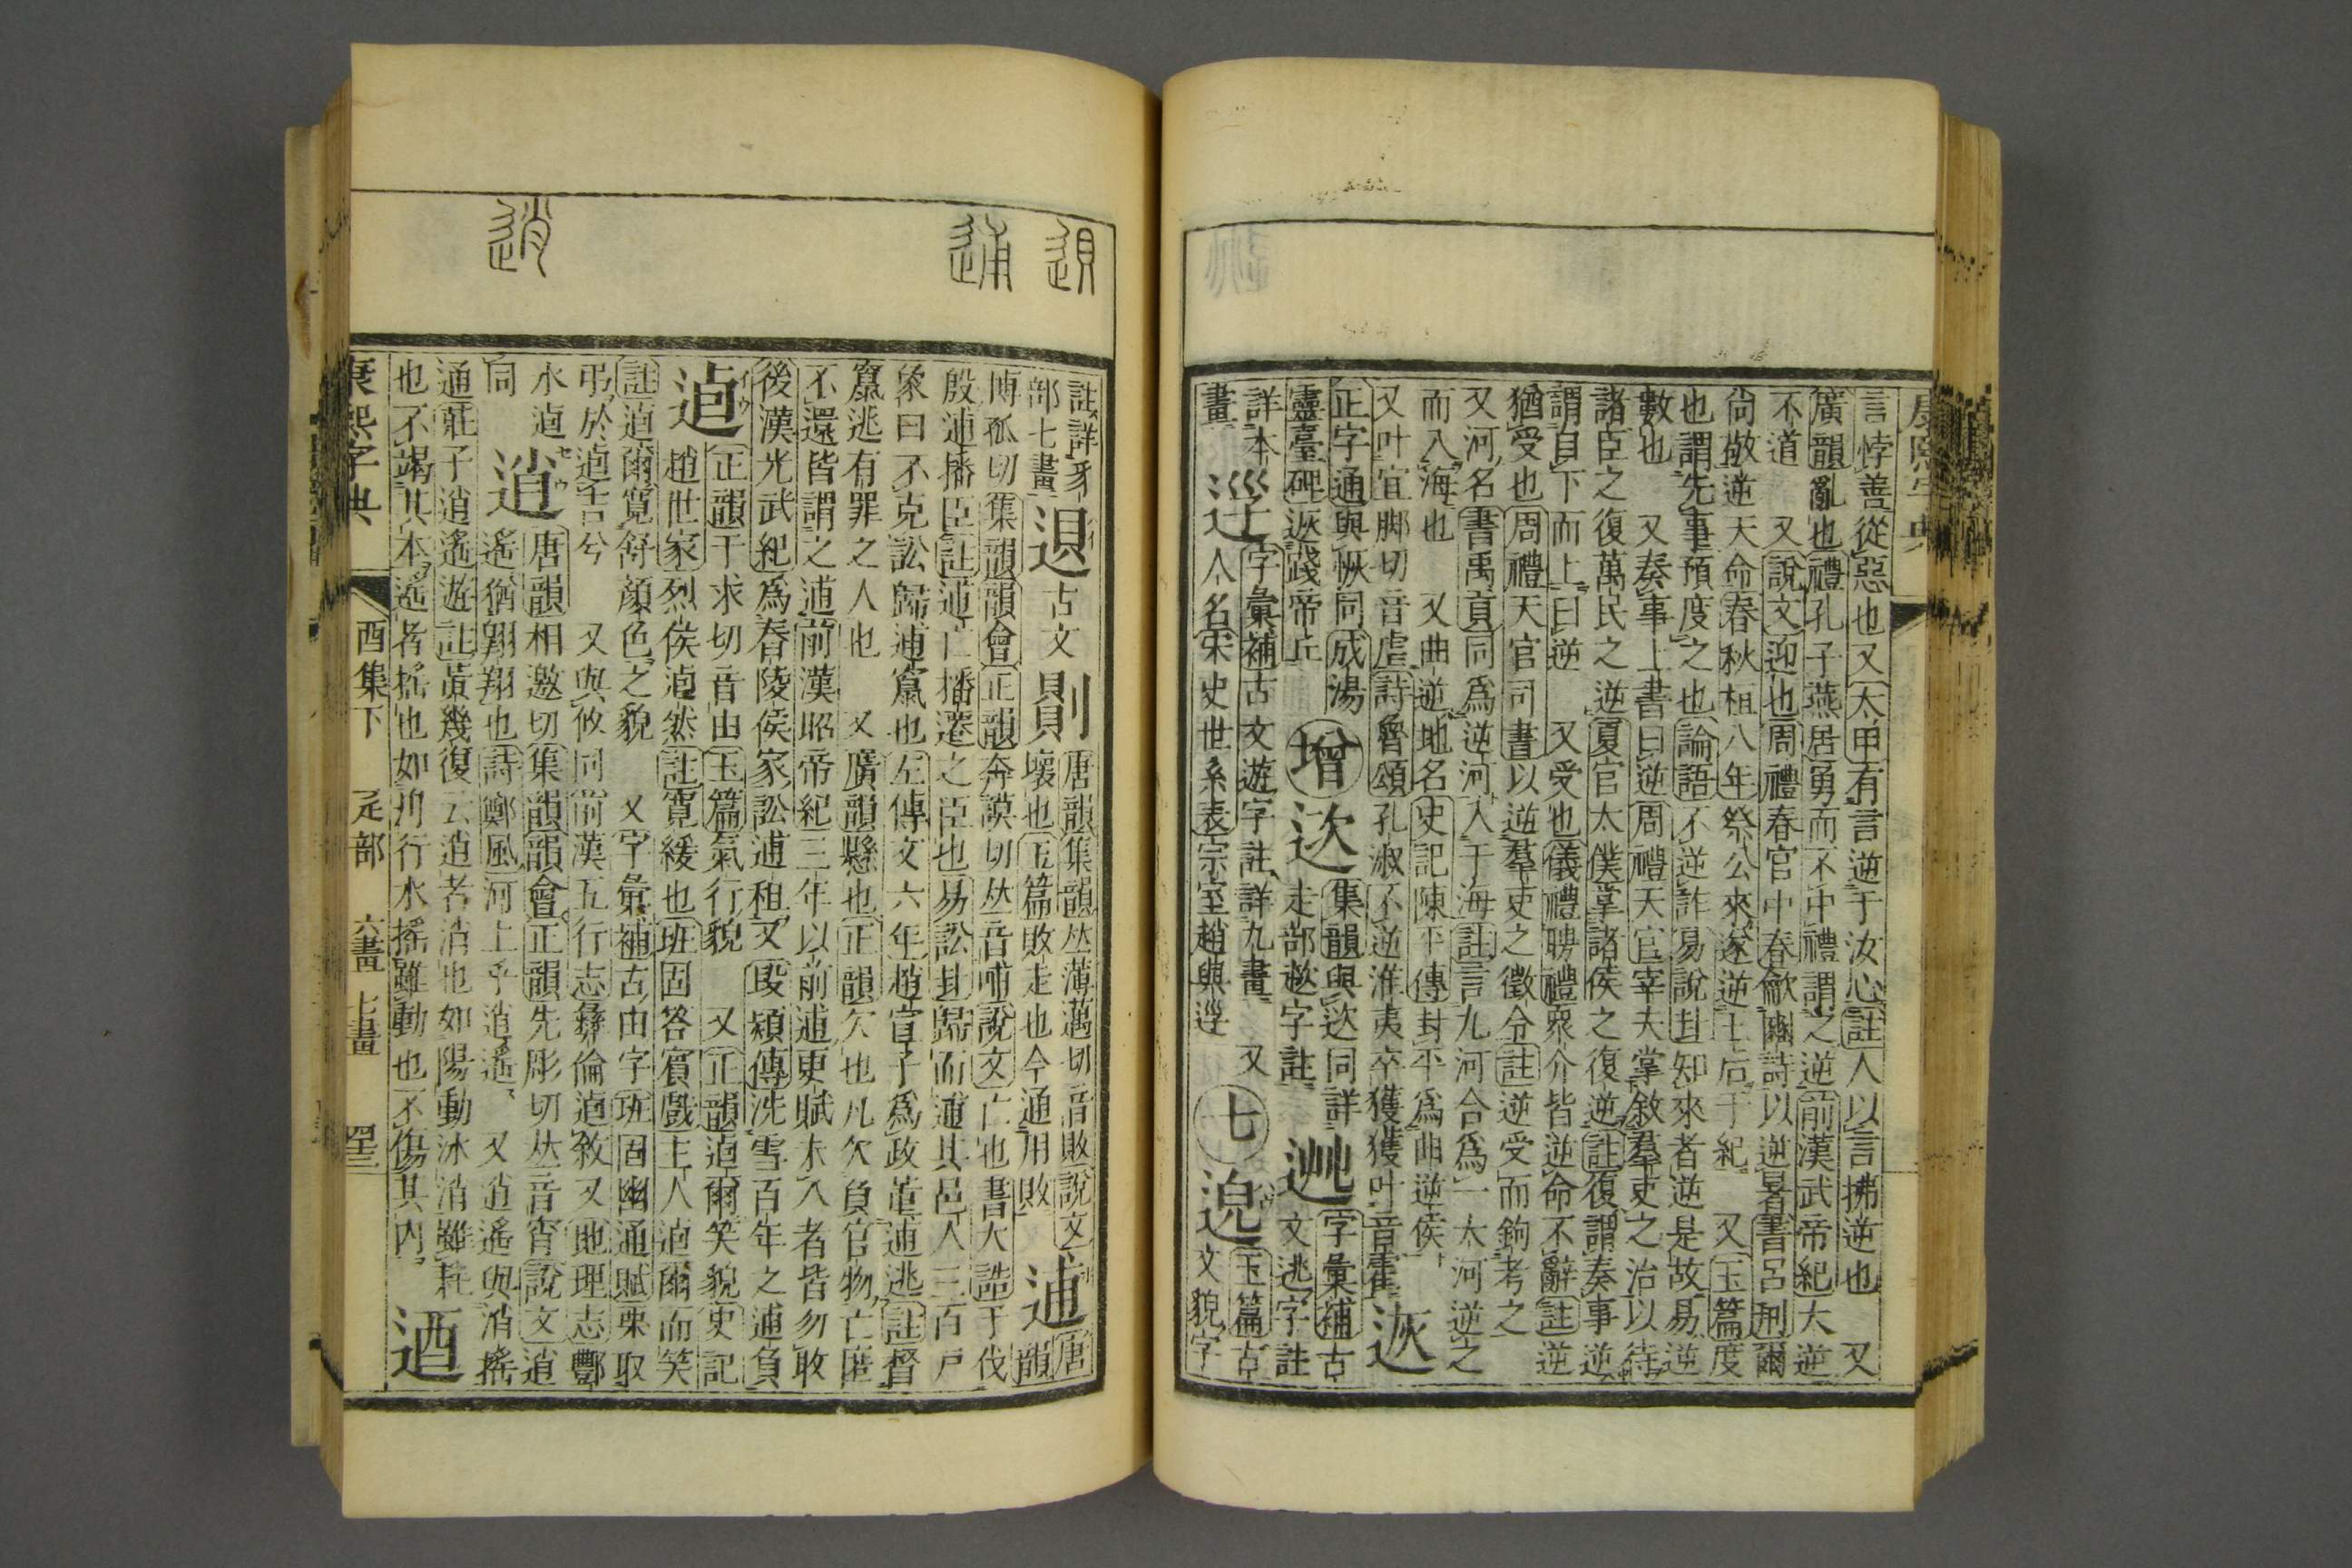 言悖善從惡也又太甲有言逆于汝心註人以言拂逆也 又
廣韻亂也禮孔子燕居勇而不中禮謂之逆前漢武帝紀大逆
不道 又說文迎也周禮春官中春龡豳詩以逆暑書呂刑爾
尙敬逆天命春秋桓八年祭公來遂逆王后于紀 又玉篇度
也謂先事預度之也論語不逆詐易說卦知來者逆是故易逆
數也 又奏事上書曰逆周禮天官宰夫掌敘羣吏之治以待
諸臣之復萬民之逆夏官太僕掌諸侯之復逆註復謂奏事逆
謂自下而上曰逆 又受也儀禮聘禮衆介皆逆命不辭註逆
猶受也周禮天官司書以逆羣吏之徵令註逆受而鉤考之
又河名書禹貢同爲逆河入于海註言九河合爲一大河逆之
而入海也 又曲逆地名史記陳平傳封平爲曲逆侯
又叶宜脚切音虐詩魯頌孔淑不逆淮夷卒獲獲叶音霍
正字通與恢同成湯
靈臺碑踐帝丘
增
集韻與同詳
走部字註
字彙補古
文逃字註
詳本
畫
字彙補古文遊字註詳九畫 又
人名宋史世系表宗室趙與
七
玉篇古
文貌字
註詳豸
部七畫
退
古文
則
唐韻集韻𠀤薄邁切音敗說文
壞也玉篇敗走也今通用敗
逋
唐
韻
博孤切集韻韻會正韻奔謨切𠀤音晡說文亡也書大誥于伐
殷逋播臣註逋亡播遷之臣也易訟卦歸而逋其邑人三百戸
象曰不克訟歸逋竄也左傳文六年趙宣子爲政董逋逃註督
竄逃有罪之人也 又廣韻懸也正韻欠也凡欠負官物亡匿
不還皆謂之逋前漢昭帝紀三年以前逋更賦未入者皆勿收
後漢光武紀爲春陵侯家訟逋租 又段熲傳洗雪百年之逋負
逌
正韻于求切音由玉篇氣行貌 又正韻逌爾笑貌史記
趙世家烈侯逌然註寬緩也班固答賔戲主人逌爾而笑
註逌爾寬舒顔色之貌 又字彙補古由字班固幽通賦栗取
弔於逌吉兮 又與攸同前漢五行志彝倫逌敘又地理志酆
水逌
同
逍
唐韻相邀切集韻韻會正韻先彫切𠀤音宵說文逍
遙猶翺翔也詩鄭風河上乎逍遙 又逍遙與消搖
通莊子消遙遊註黃幾復云逍者消也如陽動冰消雖耗
也不竭其本遙者搖也如舟行水搖雖動也不傷其內
逎
康熙字典
酉集下 辵部 六畫 七畫